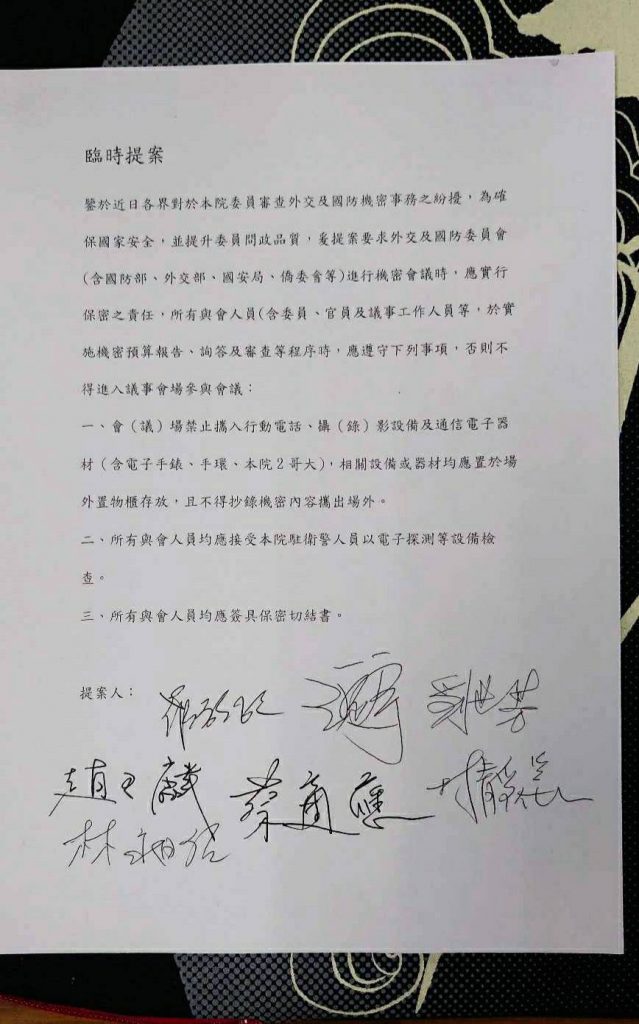 臨時提案
鑒於近日各界對於本院委員審查外交及國防機密事務之紛擾，為確
保國家安全，並提升委員問政品質，爰提案要求外交及國防委員會
(含國防部、外交部、國安局、僑委會等)進行機密會議時，應實行
保密之責任，所有與會人員(含委員、官員及議事工作人員等，於實
施機密預算報告、詢答及審查等程序時，應遵守下列事項，否則不
得進入議事會場參與會議：
一、會（議）場禁止攜入行動電話、攝（錄）影設備及通信電子器
材（含電子手錶、手環、本院2哥大)，相關設備或器材均應置於場
外置物櫃存放，且不得抄錄機密內容攜出場外。
二、所有與會人員均應接受本院駐衛警人員以電子探測等設備檢
查。
三、所有與會人員均應簽具保密切結書。
提案人：
蔡適應